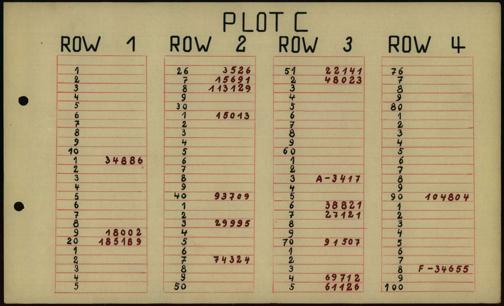 PLOT C
ROW 1
1
2
3
4
5
6
7
8
9
10
1 34886
2
3
4
5
6
7
8
9 18002
20 185189
1
2
3
4
5
ROW 2
26 3526
7 15691
8 113129
9
30
1 15013
2
3
4
5
6
7
8
9
40 93709
1
2
3 29995
4
5
6
7 74324
8
9
50
ROW 3
51 22141
2 48023
3
4
5
6
7
8
9
60
1
2
3 A-3417
4
5
6 38821
7 27121
8
9
70 91507
1
2
3
4 69712
5 61126
ROW 4
76
7
8
9
80
1
2
3
4
5
6
7
8
9
90 104804
1
2
3
4
5
6
7
8 F-34655
9
100